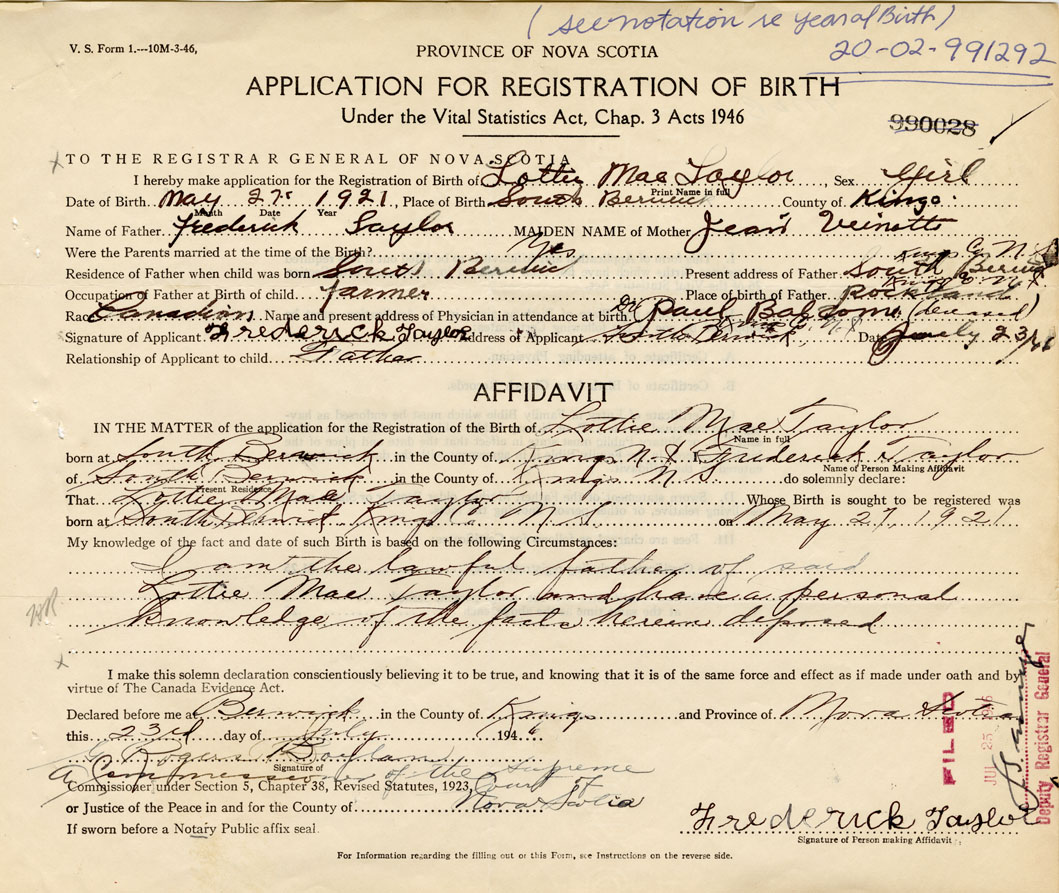 (see notation re year of Birth)
V. S. Form 1.---10M-3-46,
PROVINCE OF NOVA SCOTIA
20-02-991292
APPLICATION FOR REGISTRATION OF BIRTH
Under the Vital Statistics Act, Chap. 3 Acts 1946
990028
TO THE REGISTRAR GENERAL OF NOVA SCOTIA
I hereby make application for the Registration of Birth of Lottie Mae Taylor, Sex Girl
Print Name in full
Date of Birth May 27 1921, Place of Birth South Berwick County of Kings
Month Date Year
Name of Father Frederick Taylor MAIDEN NAME of Mother Jean Veinotte
Were the Parents married at the time of the Birth? Yes
Kings Co N.S
Residence of Father when child was born South Berwick Present address of Father South Berwick
Occupation of Father at Birth of child farmer Place of birth of Father Rockland
Race Canadian Name and present address of Physician in attendance at birth Dr Paul (deceased)
Signature of Applicant Frederick Taylor Address of Applicant South Berwick Date July 23/46
Relationship of Applicant to child Father
AFFIDAVIT
IN THE MATTER of the application for the Registration of the Birth of Lottie Mae Taylor
Name in full
born at South Berwick in the County of Kings N.S Frederick Taylor
Name of Person Making Affidavit
of South Berwick in the County of Kings N S do solemnly declare:
Present Residence
That Lottie Mae Taylor Whose Birth is sought to be registered was
born at South Berwick Kings Co. N S on May 27, 1921
My knowledge of the fact and date of such Birth is based on the following Circumstances:
I am the lawful father of said
Lottie Mae Taylor and have a personal
knowledge of the facts herein deposed
I make this solemn declaration conscientiously believing it to be true, and knowing that it is of the same force and effect as if made under oath and by
virtue of The Canada Evidence Act.
Declared before me at Berwick in the County of Kings and Province of Nova Scotia
this 23rd day of July 1946
Signature of
A Commissioner of the Supreme
Commissioner under Section 5, Chapter 38, Revised Statutes, 1923, Court of
or Justice of the Peace in and for the County of Nova Scotia
If sworn before a Notary Public affix seal.
Frederick Taylor
Signature of Person making Affidavit
For Information regarding the filling out of this Form, see Instructions on the reverse side.
FILED
Deputy Registrar General